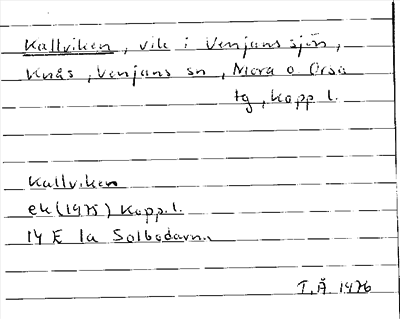 Kallviken, vik i Venjanssjön,
Knås, Venjans sn, Mora o. Orsa
tg, Kopp. l.
Kallviken
ek (1975) Kopp. l.
14 E 1a Solbodarna
T.Å 1976